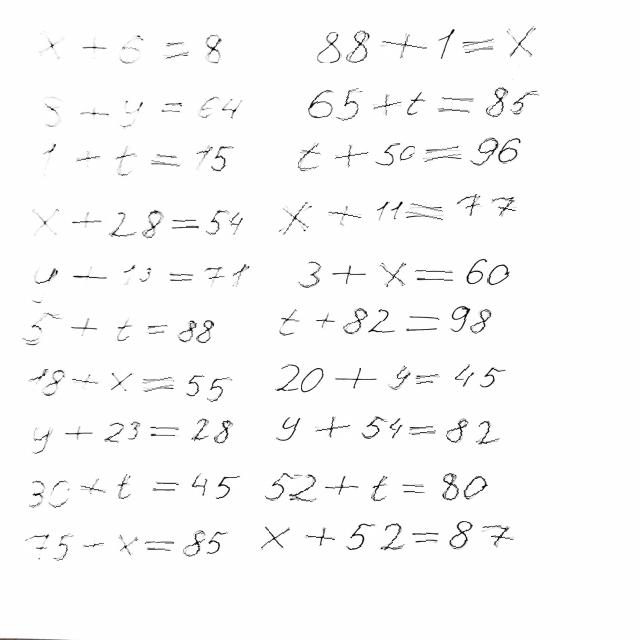 x + 6 = 8 88 + 1 = x
8 + y = 64 65 + t = 85
1 + t = 15 t + 50 = 96
x + 28 = 54 x + 11 = 77
y + 13 = 71 3 + x = 60
5 + t = 88 t + 82 = 98
18 + x = 55 20 + y = 45
y + 23 = 28 y + 54 = 82
30 + t = 45 52 + t = 80
75 - x = 85 x + 52 = 87